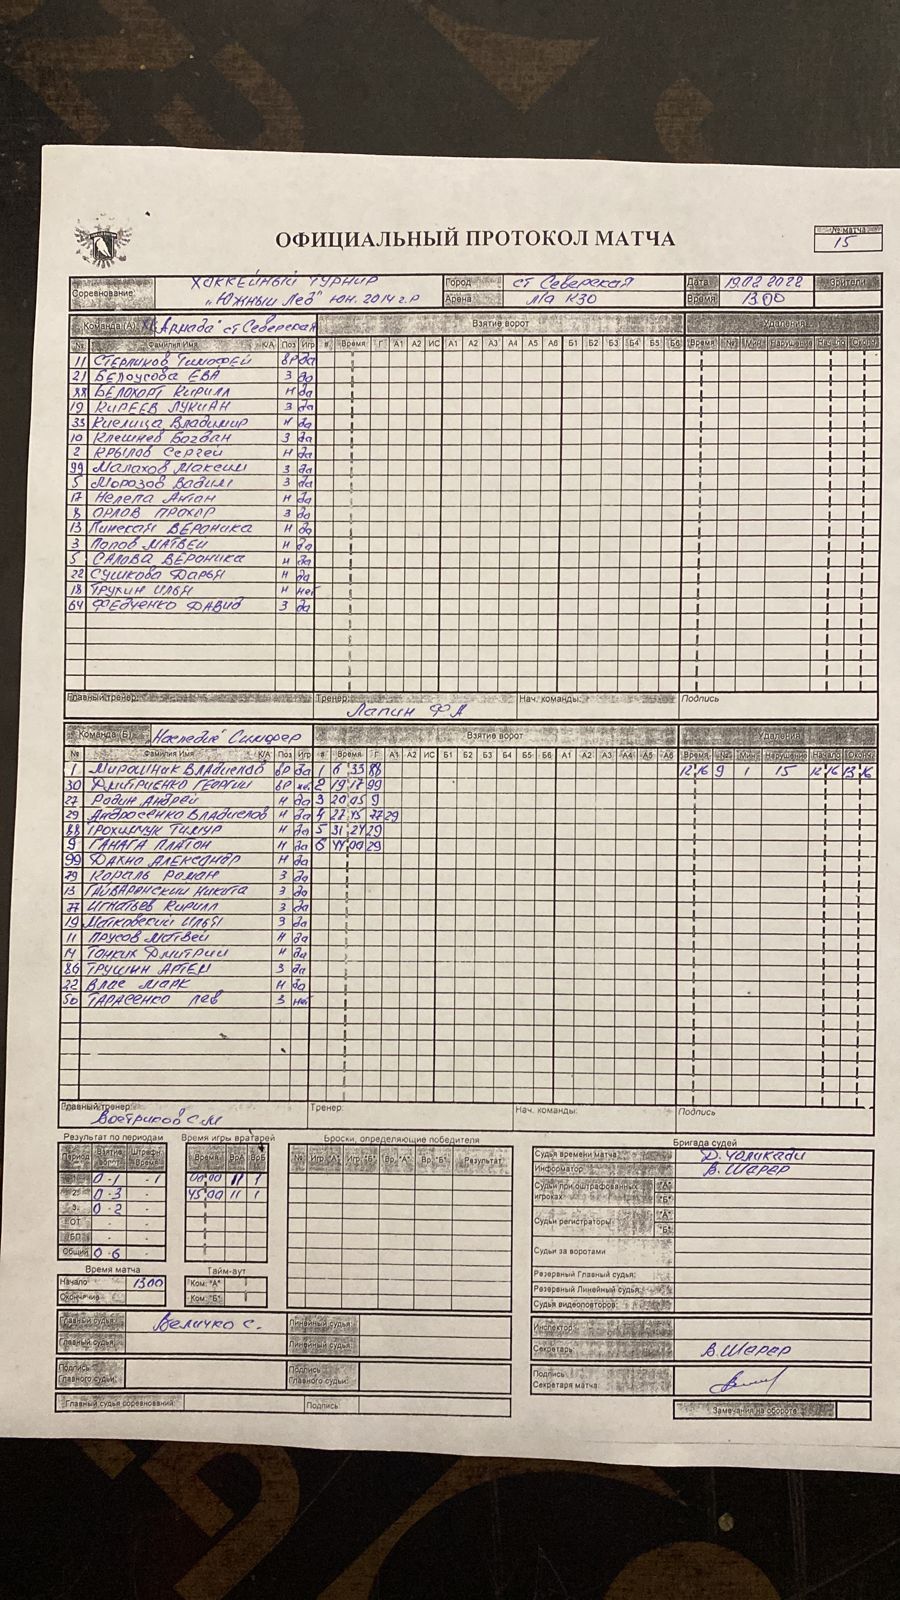 ОФИЦИАЛЬНЫЙ ПРОТОКОЛ МАТЧА
№ матча 15
Соревнование: ХОККЕЙНЫЙ ТУРНИР "Южный Лёд" юн. 2014 г.р
Город ст Северская Дата 19.02 2022 Зрители
Арена Время 13 00
Команда (А) "Армада" ст Северская Взятие ворот Удаления
№ Фамилия Имя К/А Поз Игр # Время Г А1 А2 ИС А1 А2 А3 А4 А5 А6 Б1 Б2 Б3 Б4 Б5 Б6 Время № Мин Нарушение Начало Оконч.
11 СТЕРЛИКОВ ТИМОФЕЙ ВР да
21 БЕЛОУСОВА ЕВА З да
88 БЕЛОХОРТ КИРИЛЛ Н да
19 КИРЕЕВ ЛУКИАН З да
33 Кислица Владимир Н да
10 Клешнев Богдан З да
2 КРЫЛОВ Сергей Н да
99 Малахов Максим З да
5 Морозов Вадим З да
17 Нелепа Антон Н да
8 ОРЛОВ ПРОХОР З да
13 Пинская ВЕРОНИКА Н да
3 Попов МАТВЕЙ Н да
5 САЛОВА ВЕРОНИКА Н да
22 СУШКОВА ДАРЬЯ Н да
18 ТРУХИН ИЛЬЯ Н нет
64 ФЕДЧЕНКО ДАВИД З да
Главный тренер: Тренер: Нач. команды: Подпись
Лапин Ф А
Команда (Б) Наследие Взятие ворот Удаления
№ Фамилия Имя К/А Поз Игр # Время Г А1 А2 ИС Б1 Б2 Б3 Б4 Б5 Б6 А1 А2 А3 А4 А5 А6 Время № Мин Нарушение Начало Оконч.
1 Мирошник Владислав ВР да 1 6 33 88 12 16 9 1 15 12 16 13 16
30 ДМИТРИЕНКО ГЕОРГИЙ ВР нет 2 19 17 99
27 Родин Андрей Н да 3 20 05 9
29 Андросенко Владислав Н да 4 22 45 77 29
88 ТРОХИМЧУК ТИМУР Н да 5 31 24 29
9 ГАНАГА ПЛАТОН Н да 6 44 00 29
99 ДАХНО АЛЕКСАНДР Н да
79 КОРАЛЬ РОМАН З да
13 ГАЙВАРОНСКИЙ Никита З да
77 Игнатьев Кирилл З да
19 Матковский Илья З да
11 Прусов Матвей Н да
14 ТОНКИХ ДМИТРИЙ Н да
86 ТРУШИН АРТЕМ З да
22 ВЛАС МАРК Н да
50 ТАРАСЕНКО ЛЕВ З нет
Главный тренер: Тренер: Нач. команды: Подпись
Востриков С.М
Результат по периодам Время игры вратарей Броски, определяющие победителя Бригада судей
Период Взятие ворот Штрафн. время Время ВрА ВрБ № Игр."А" Игр."Б" Вр."А" Вр."Б" Результат
1. 0 - 1 - 1 00 00 11 1
2. 0 - 3 - 45 00 11 1
3. 0 - 2 -
ОТ - -
БП - -
Общий 0 - 6 -
Судья времени матча:
Информатор: В. Шарер
Судьи при оштрафованных игроках "А" "Б"
Судьи регистраторы: "А" "Б"
Судьи за воротами
Резервный Главный судья:
Резервный Линейный судья:
Судья видеоповторов:
Время матча Тайм-аут
Начало 13 00 Ком. "А"
Окончание Ком. "Б"
Главный судья: Величко С. Линейный судья:
Главный судья: Линейный судья:
Инспектор:
Секретарь: В. Шарер
Подпись Главного судьи: Подпись Главного судьи:
Подпись Секретаря матча
Главный судья соревнований: Подпись:
Замечания на обороте